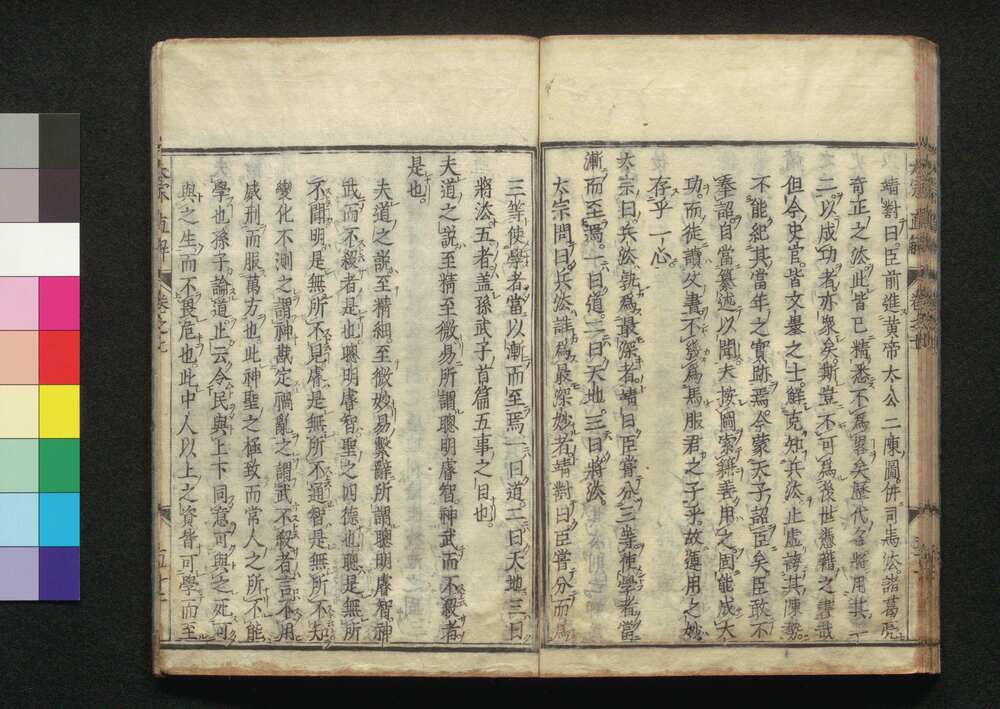 靖對曰臣前進黄帝太公二陳圖併司馬法諸葛亮
奇正之法此皆已精悉不爲畧矣歷代名將用其一
二以成功者亦衆矣斯豈不可爲後世憑藉之書哉
但今史官皆文墨之士鮮克知兵法止虚誇其陳勢
不能紀其當年之實跡焉今蒙天子詔臣矣臣敢不
奉詔自當纂述以聞夫按圖索辯義用之固能成大
功而徒讀父書不幾爲馬服君之子乎故運用之妙
存乎一心
太宗曰兵法孰爲最深者靖曰臣嘗分三等使學者當
漸而至焉一曰道二曰天地三曰將法
太宗問曰兵法誰爲最深妙者靖對曰臣嘗分而爲
三等使學者當以漸而至焉一曰道二曰天地三曰
將法五者盖孫武子首篇五事之目也
夫道之説至精至微易所謂聰明睿智神武而不殺者
是也
夫道之説至精細至微妙易繫辭所謂聰明睿智神
武而不殺者是也聰明睿智聖之四德也聰是無所
不聞明是無所不見睿是無所不通智是無所不知
變化不測之謂神戡定禍亂之謂武不殺者言不用
威刑而服萬方也此神聖之極致而常人之所不能
學也孫子論道止云令民與上下同意可與之死可
與之生而不畏危也此中人以上之資皆可學而至
太宗 直解
卷之七